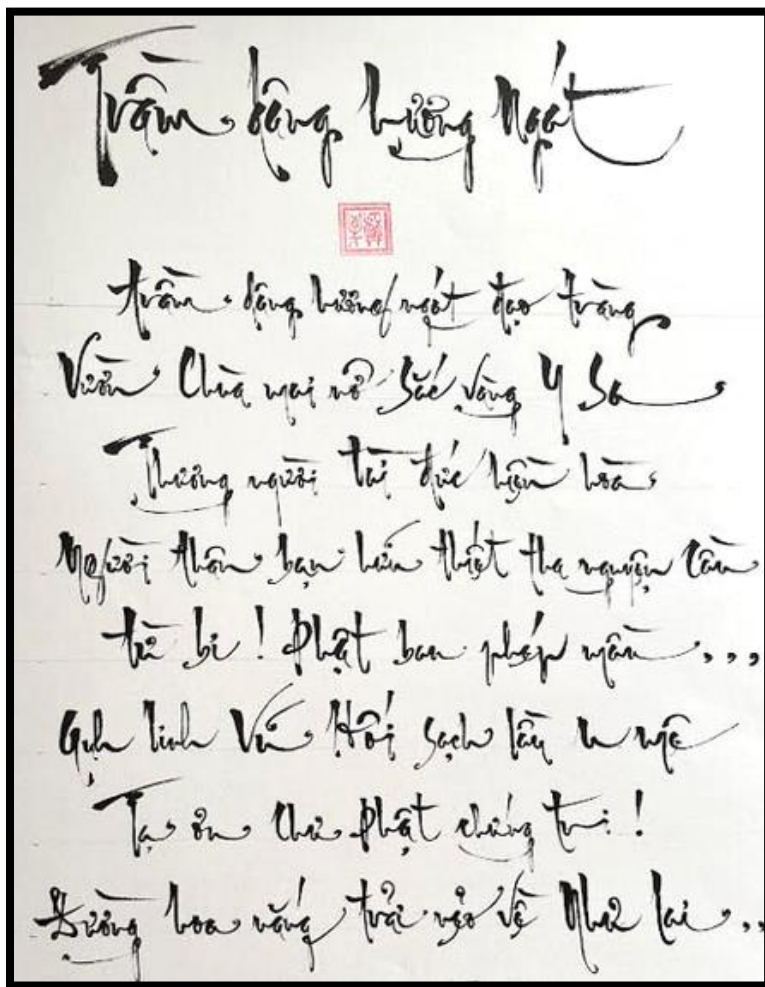 Trầm động hương ngát
trầm động hương ngát đạo tràng
Vườn Chùa mai nở sắc vàng Y Sa
Thương người tài đức hiền hòa
Người thân bạn hữu thiết tha nguyện cầu
từ bi ! Phật ban phép mầu ...
linh Vũ Hối sạch lầu u mê
Tạ ơn Chư Phật chứng tri !
Đường hoa nắng trải nẻo về Như lai ..